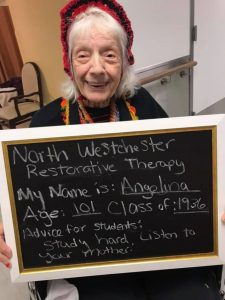 North Westchester
Restorative Therapy
My Name is: Angelina
Age: 101 Class of: 1936
Advice for students:
Study hard. Listen to
your mother.